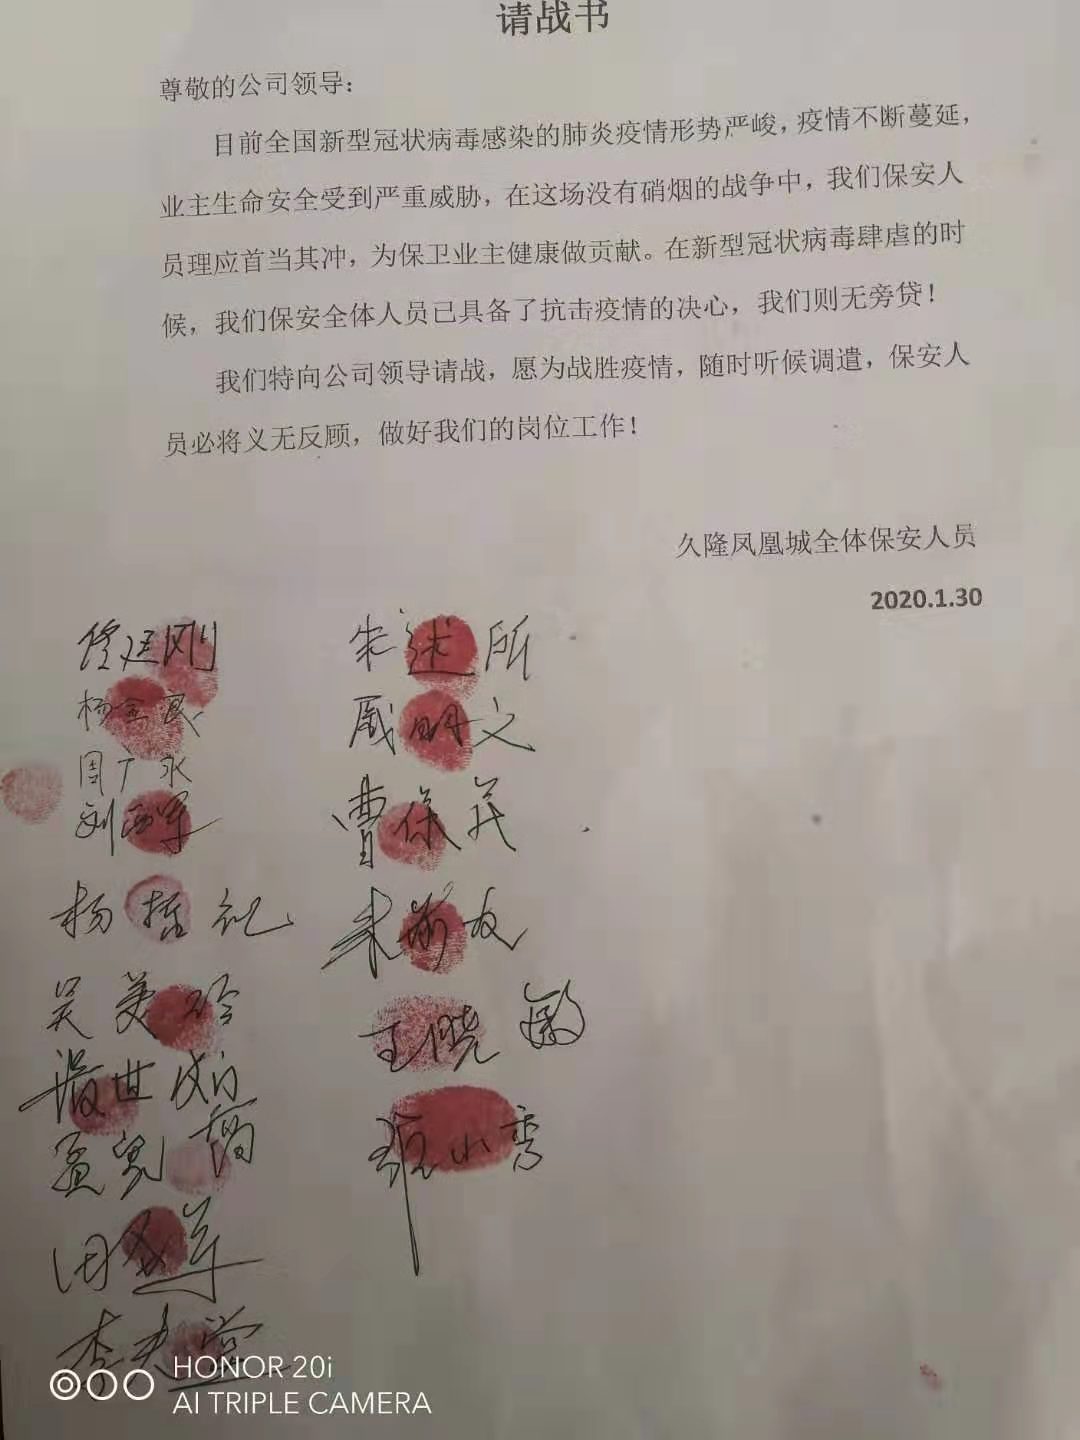 请战书
尊敬的公司领导：
目前全国新型冠状病毒感染的肺炎疫情形势严峻，疫情不断蔓延，
业主生命安全受到严重威胁，在这场没有硝烟的战争中，我们保安人
员理应首当其冲，为保卫业主健康做贡献。在新型冠状病毒肆虐的时
候，我们保安全体人员已具备了抗击疫情的决心，我们则无旁贷！
我们特向公司领导请战，愿为战胜疫情，随时听候调遣，保安人
员必将义无反顾，做好我们的岗位工作！
久隆凤凰城全体保安人员
2020.1.30
朱述所
杨金良
明文
周广永
刘军
曹保
杨
友
吴美玲
王晓
世
小
田
李
HONOR 20i
AI TRIPLE CAMERA